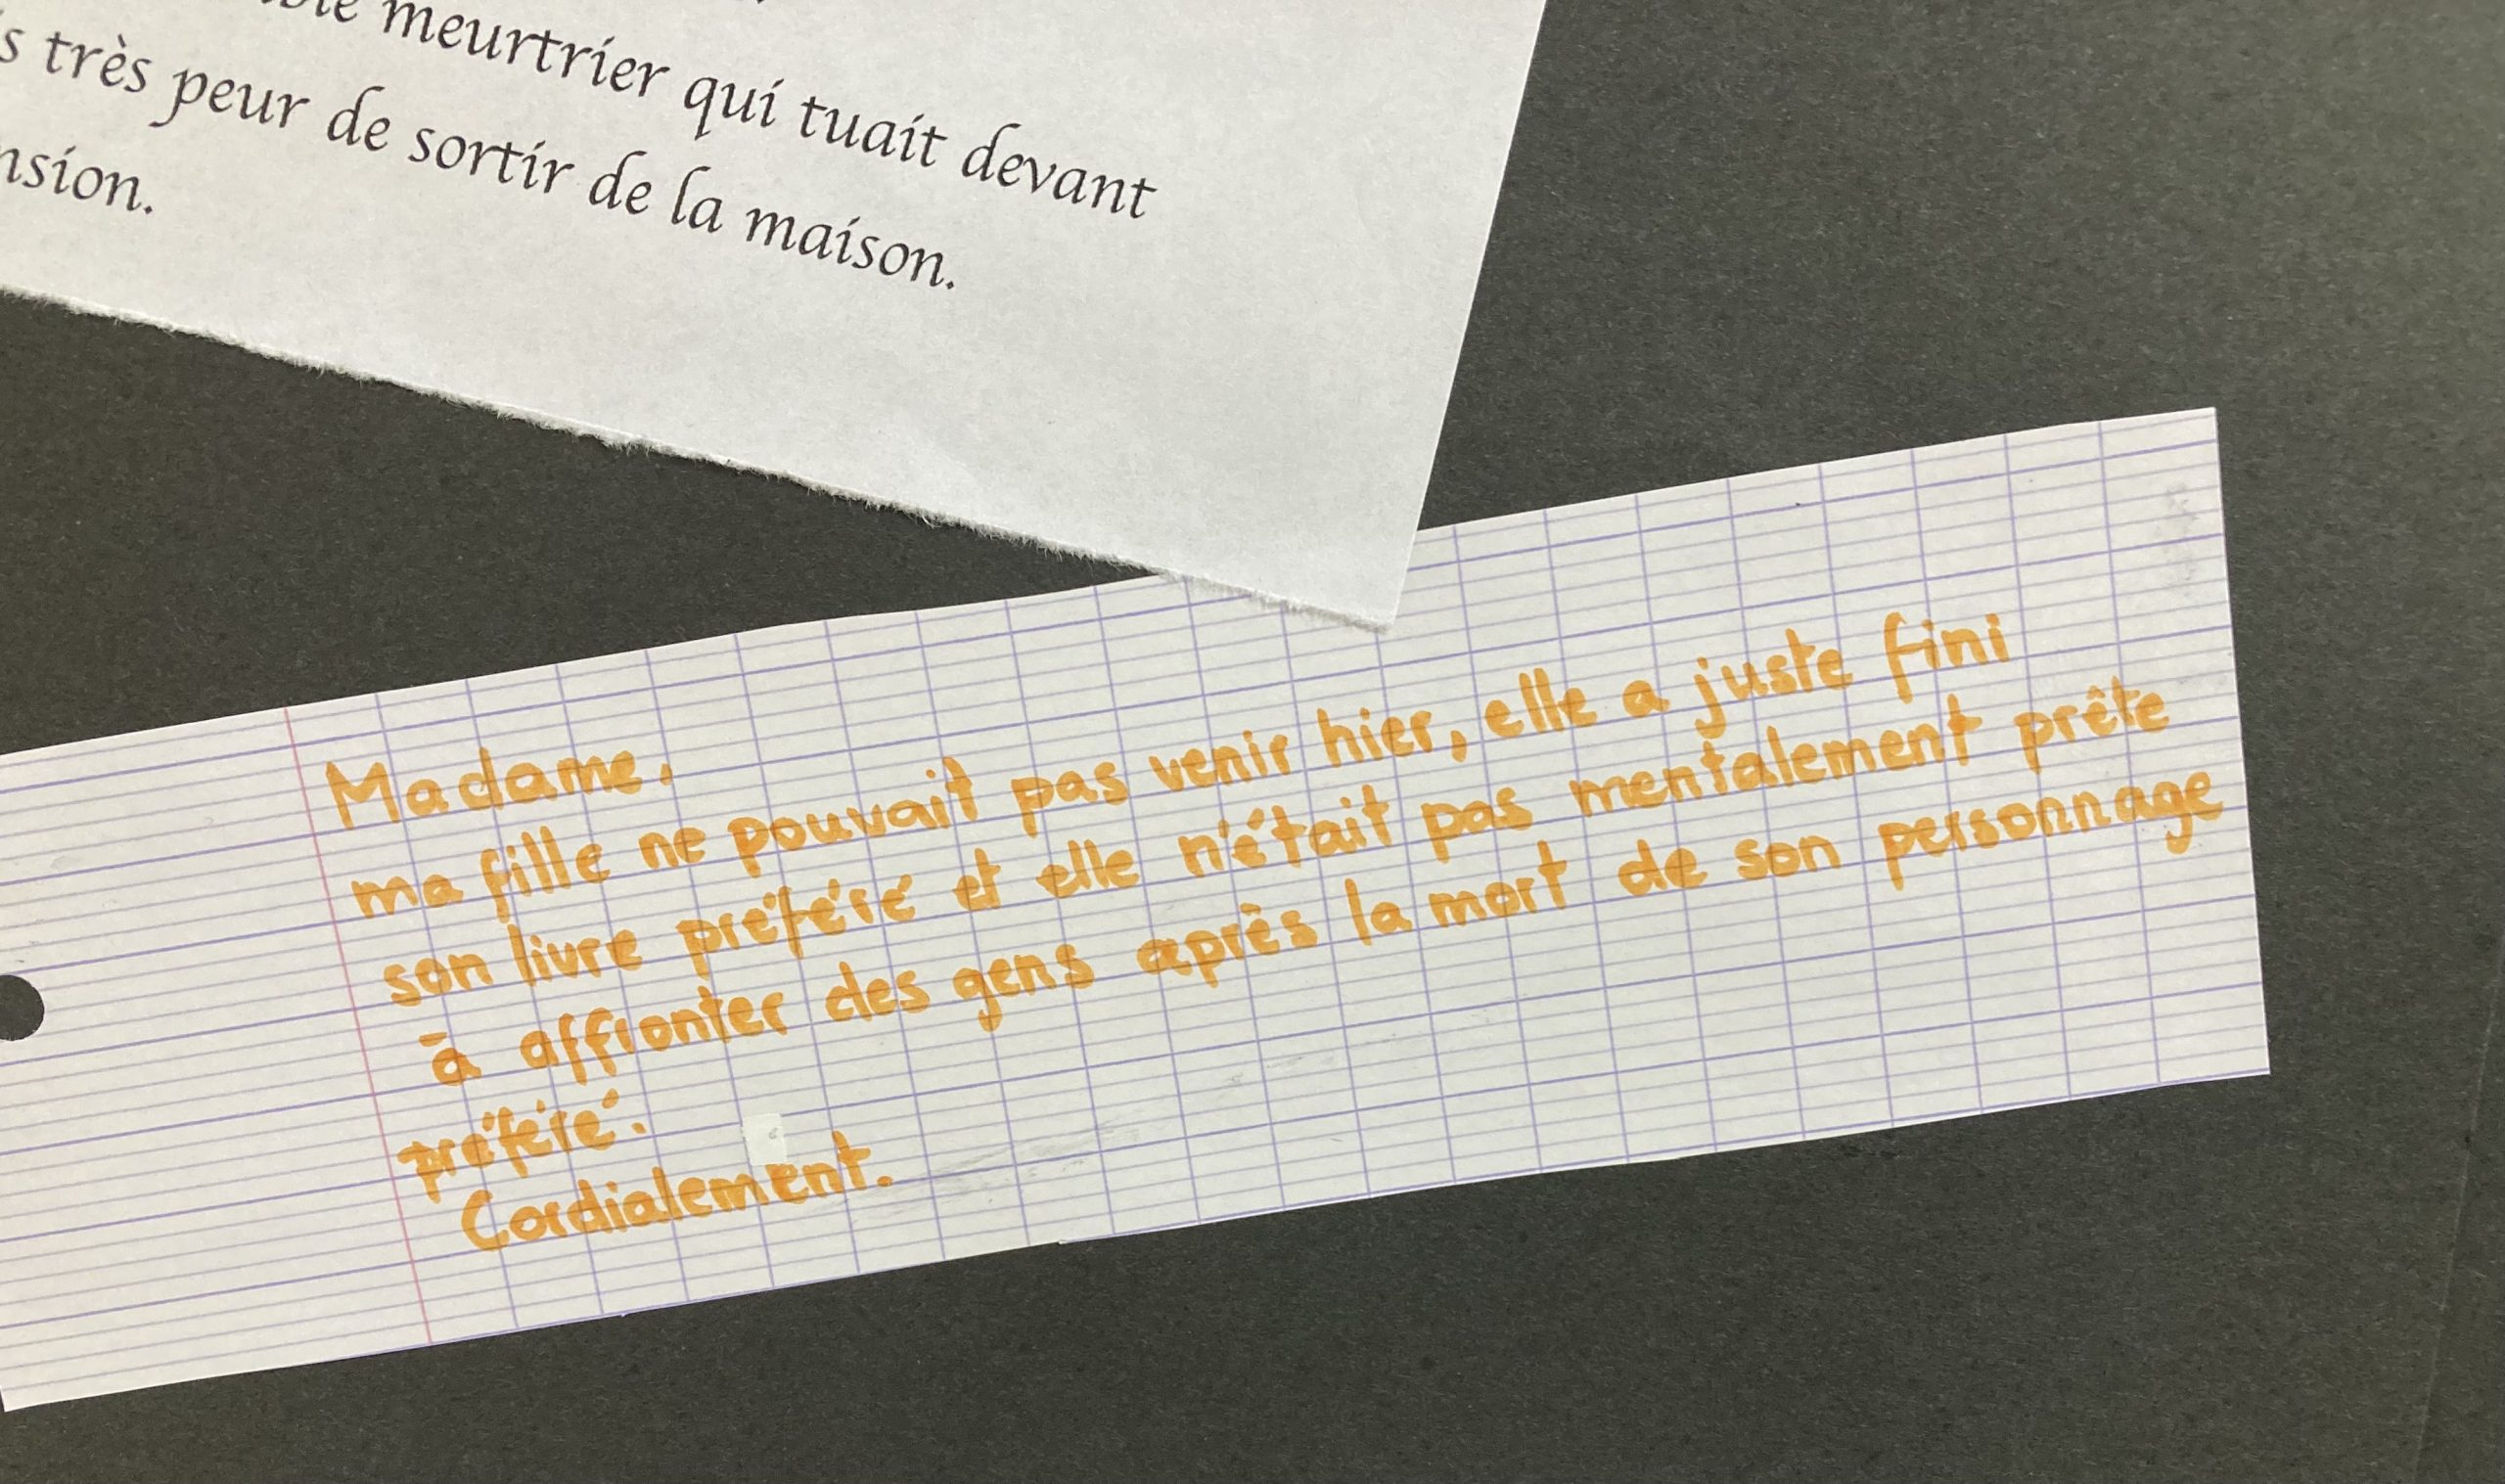 meurtrier qui tuait devant
très peur de sortir de la maison.
Madame,
ma fille ne pouvait pas venir hier, elle a juste fini
son livre préféré et elle n'était pas mentalement prête
à affronter des gens après la mort de son personnage
préféré.
Cordialement.